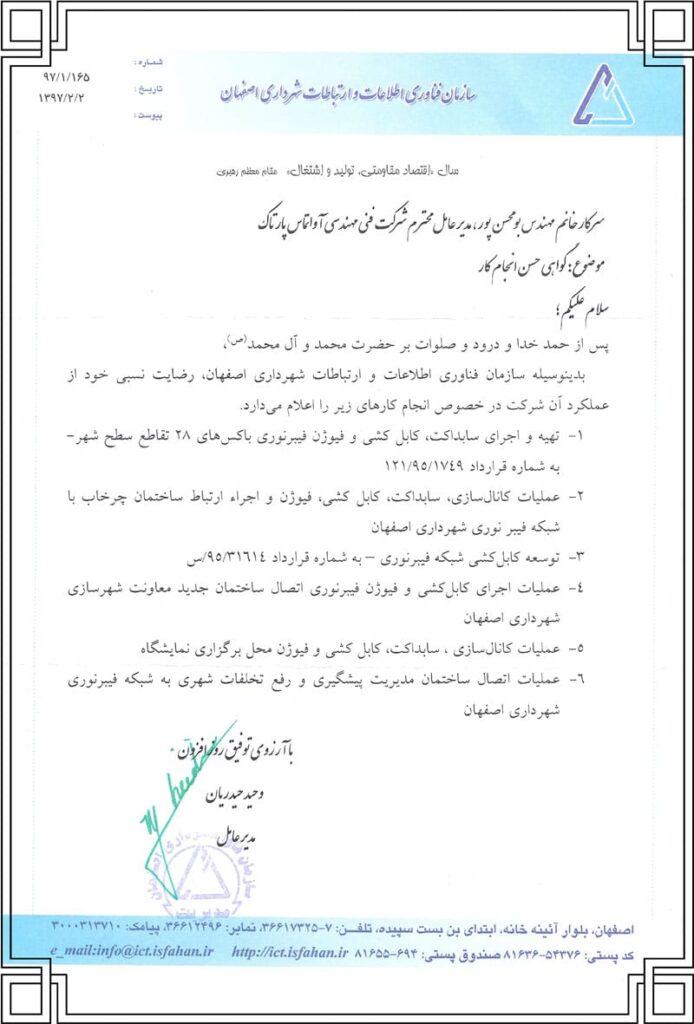 سازمان فناوری اطلاعات و ارتباطات شهرداری اصفهان
شماره: ۹۷/۱/۱۶۵
تاریخ: ۱۳۹۷/۲/۲
پیوست:
سال «اقتصاد مقاومتی، تولید و اشتغال» مقام معظم رهبری
سرکار خانم مهندس بومحسن پور، مدیرعامل محترم شرکت فنی مهندسی آواتاس پارتاک
موضوع: گواهی حسن انجام کار
سلام علیکم؛
پس از حمد خدا و درود و صلوات بر حضرت محمد و آل محمد(ص)،
بدینوسیله سازمان فناوری اطلاعات و ارتباطات شهرداری اصفهان، رضایت نسبی خود از
عملکرد آن شرکت در خصوص انجام کارهای زیر را اعلام می‌دارد.
۱- تهیه و اجرای سابداکت، کابل کشی و فیوژن فیبرنوری باکس‌های ۲۸ تقاطع سطح شهر-
به شماره قرارداد ۱۲۱/۹۵/۱۷۴۹
۲- عملیات کانال‌سازی، سابداکت، کابل کشی، فیوژن و اجراء ارتباط ساختمان چرخاب با
شبکه فیبر نوری شهرداری اصفهان
۳- توسعه کابل‌کشی شبکه فیبرنوری – به شماره قرارداد ۹۵/۳۱۶۱۴/س
۴- عملیات اجرای کابل‌کشی و فیوژن فیبرنوری اتصال ساختمان جدید معاونت شهرسازی
شهرداری اصفهان
۵- عملیات کانال‌سازی ، سابداکت، کابل کشی و فیوژن محل برگزاری نمایشگاه
۶- عملیات اتصال ساختمان مدیریت پیشگیری و رفع تخلفات شهری به شبکه فیبرنوری
شهرداری اصفهان
با آرزوی توفیق روزافزون
وحید حیدریان
مدیرعامل
مدیریت
اصفهان، بلوار آئینه خانه، ابتدای بن بست سپیده، تلفن: ۷-۳۶۶۱۷۳۲۵، نمابر: ۳۶۶۱۲۴۹۶، پیامک: ۳۰۰۰۳۱۳۷۱۰
کد پستی: ۵۴۳۷۶-۸۱۶۳۶ صندوق پستی: ۶۹۴-۸۱۶۵۵ http://ict.isfahan.ir e_mail:info@ict.isfahan.ir